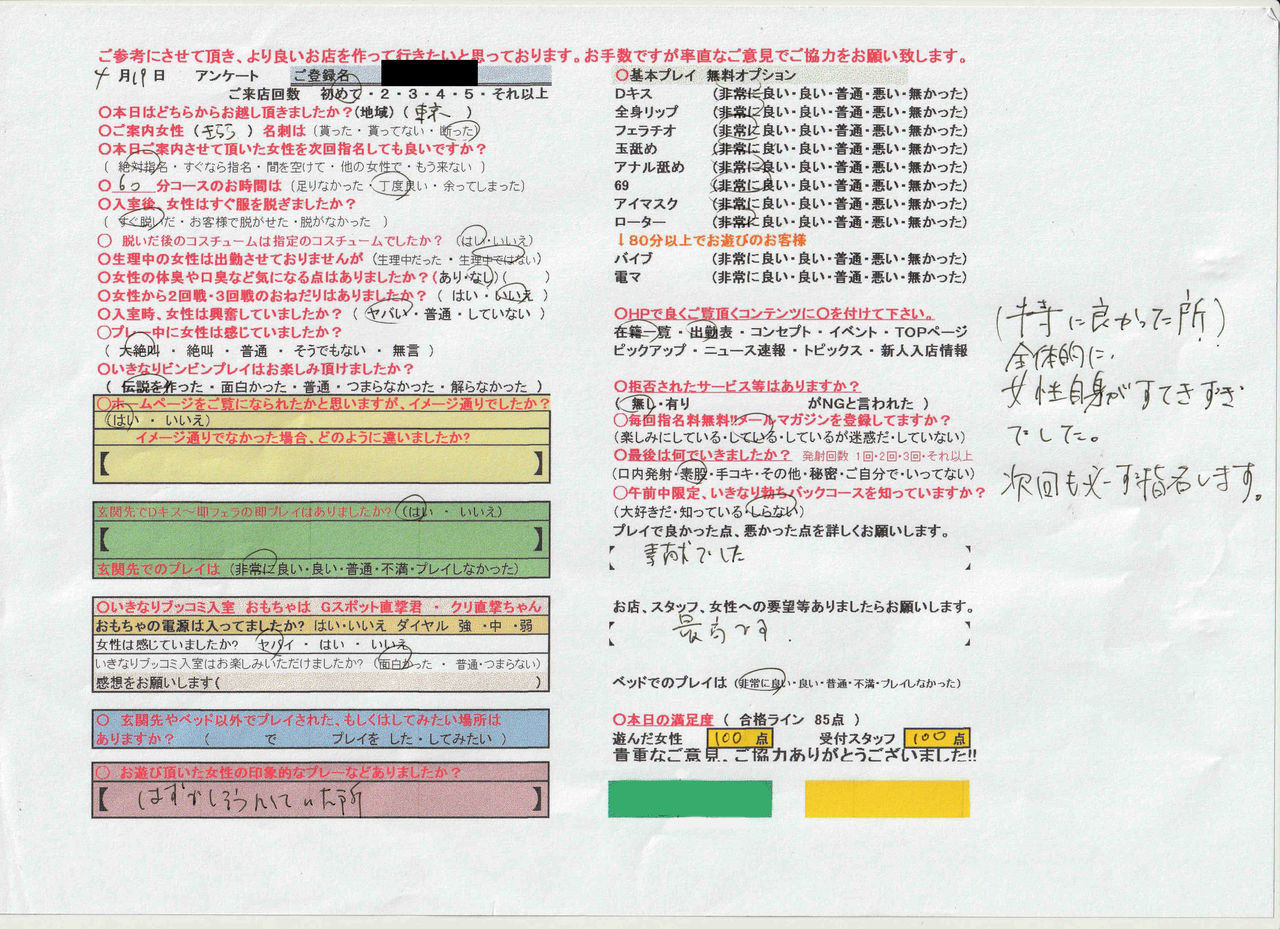 ご参考にさせて頂き、より良いお店を作って行きたいと思っております。お手数ですが率直なご意見でご協力をお願い致します。
4月19日 アンケート ご登録名
ご来店回数 初めて・2・3・4・5・それ以上
〇本日はどちらからお越し頂きましたか?(地域) ( 東京 )
〇ご案内女性 ( きらら ) 名刺は (貰った・貰ってない・断った)
〇本日ご案内させて頂いた女性を次回指名しても良いですか?
( 絶対指名・すぐなら指名・間を空けて・他の女性で・もう来ない )
〇 60 分コースのお時間は (足りなかった・丁度良い・余ってしまった)
〇入室後、女性はすぐ服を脱ぎましたか?
( すぐ脱いだ・お客様で脱がせた・脱がなかった )
〇 脱いだ後のコスチュームは指定のコスチュームでしたか? (はい・いいえ)
〇生理中の女性は出勤させておりませんが (生理中だった・生理中ではない)
〇女性の体臭や口臭など気になる点はありましたか?(あり・なし)( )
〇女性から2回戦・3回戦のおねだりはありましたか? ( はい・いいえ )
〇入室時、女性は興奮していましたか? ( ヤバい・普通・していない )
〇プレー中に女性は感じていましたか?
( 大絶叫 ・ 絶叫 ・ 普通 ・ そうでもない ・ 無言 )
〇いきなりビンビンプレイはお楽しみ頂けましたか?
( 伝説を作った・面白かった・普通・つまらなかった・解らなかった )
〇ホームページをご覧になられたかと思いますが、イメージ通りでしたか?
(はい ・ いいえ)
イメージ通りでなかった場合、どのように違いましたか?
【 】
玄関先でDキス～即フェラの即プレイはありましたか? (はい ・ いいえ)
【 】
玄関先でのプレイは (非常に良い・良い・普通・不満・プレイしなかった)
〇いきなりブッコミ入室 おもちゃは Gスポット直撃君 ・ クリ直撃ちゃん
おもちゃの電源は入ってましたか? はい・いいえ ダイヤル 強 ・中 ・弱
女性は感じていましたか? ヤバイ ・ はい ・ いいえ
いきなりブッコミ入室はお楽しみいただけましたか? (面白かった ・ 普通・つまらない)
感想をお願いします( )
〇 玄関先やベッド以外でプレイされた、もしくはしてみたい場所は
ありますか? ( で プレイを した・してみたい )
〇 お遊び頂いた女性の印象的なプレーなどありましたか?
【 はずかしそうにしていた所 】
〇基本プレイ 無料オプション
Dキス (非常に良い・良い・普通・悪い・無かった)
全身リップ (非常に良い・良い・普通・悪い・無かった)
フェラチオ (非常に良い・良い・普通・悪い・無かった)
玉舐め (非常に良い・良い・普通・悪い・無かった)
アナル舐め (非常に良い・良い・普通・悪い・無かった)
69 (非常に良い・良い・普通・悪い・無かった)
アイマスク (非常に良い・良い・普通・悪い・無かった)
ローター (非常に良い・良い・普通・悪い・無かった)
↓80分以上でお遊びのお客様
バイブ (非常に良い・良い・普通・悪い・無かった)
電マ (非常に良い・良い・普通・悪い・無かった)
〇HPで良くご覧頂くコンテンツに〇を付けて下さい。
在籍一覧・出勤表・コンセプト・イベント・TOPページ
ピックアップ・ニュース速報・トピックス・新人入店情報
〇拒否されたサービス等はありますか?
( 無し・有り がNGと言われた )
〇毎回指名料無料!!メールマガジンを登録してますか?
(楽しみにしている・している・しているが迷惑だ・していない)
〇最後は何でいきましたか? 発射回数 1回・2回・3回・それ以上
(口内発射・素股・手コキ・その他・秘密・ご自分で・いってない)
〇午前中限定、いきなり勃ちバックコースを知っていますか?
(大好きだ・知っている・しらない)
プレイで良かった点、悪かった点を詳しくお願いします。
素敵でした
お店、スタッフ、女性への要望等ありましたらお願いします。
最高です.
ベッドでのプレイは (非常に良い・良い・普通・不満・プレイしなかった)
〇本日の満足度 ( 合格ライン 85点 )
遊んだ女性 100 点 受付スタッフ 100 点
貴重なご意見、ご協力ありがとうございました!!
(特に良かった所)
全体的に、
女性自身がすてきすぎ
でした。
次回も必ず指名します。